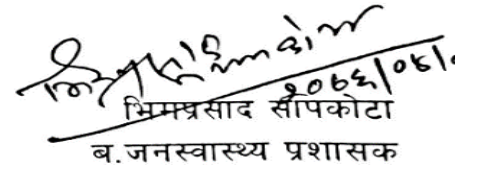 २०७६/०८/
भिमप्रसाद सापकोटा
ब.जनस्वास्थ्य प्रशासक